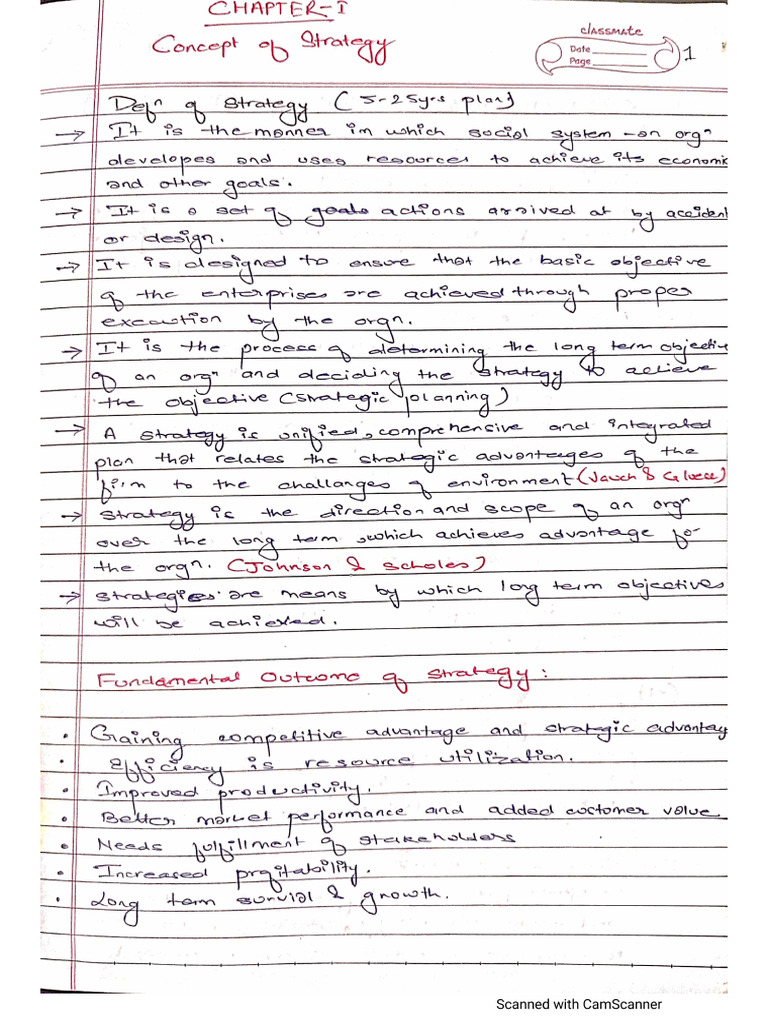 CHAPTER-I
Concept of Strategy
classmate
Date
Page
1
Defⁿ of Strategy (5-25yrs plan)
→ It is the manner in which social system -an orgⁿ
developes and uses resources to achieve its economic
and other goals.
→ It is a set of goals actions arrived at by accident
or design.
→ It is designed to ensure that the basic objective
of the enterprises are achieved through proper
execution by the orgn.
→ It is the process of determining the long term objective
of an orgⁿ and deciding the strategy to achieve
the objective (strategic planning)
→ A strategy is unified, comprehensive and integrated
plan that relates the strategic advantages of the
firm to the challanges of environment (Jauch & Glueck)
→ Strategy is the direction and scope of an orgⁿ
over the long term, which achieves advantage for
the orgn. (Johnson & Scholes)
→ Strategies are means by which long term objectives
will be achieved.
Fundamental Outcome of Strategy:
• Gaining competitive advantage and strategic advantag
• Efficiency is resource utilization.
• Improved productivity.
• Better market performance and added customer value
• Needs fulfillment of stakeholders
• Increased profitability.
• Long term survial & growth.
Scanned with CamScanner